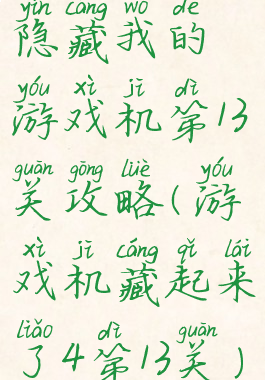 yǐn cáng wǒ de
隐藏我的
yóu xì jī dì
游戏机第13
guān gōng lüè yóu
关攻略(游
xì jī cáng qǐ lái
戏机藏起来
liǎo dì guān
了4第13关)